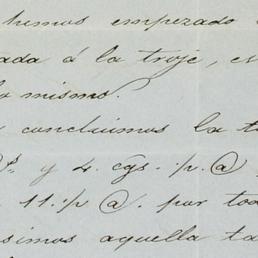 hemos empezado
ada á la troje, es
lo mismo.
concluimos la t
@s. y 4. cgs. p. @
11. p @. por tod
simos aquella ta